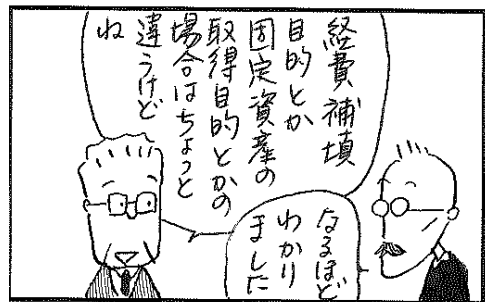 経費補填
目的とか
固定資産の
取得目的とかの
場合はちょっと
違うけど
ね
なるほど
わかり
ました